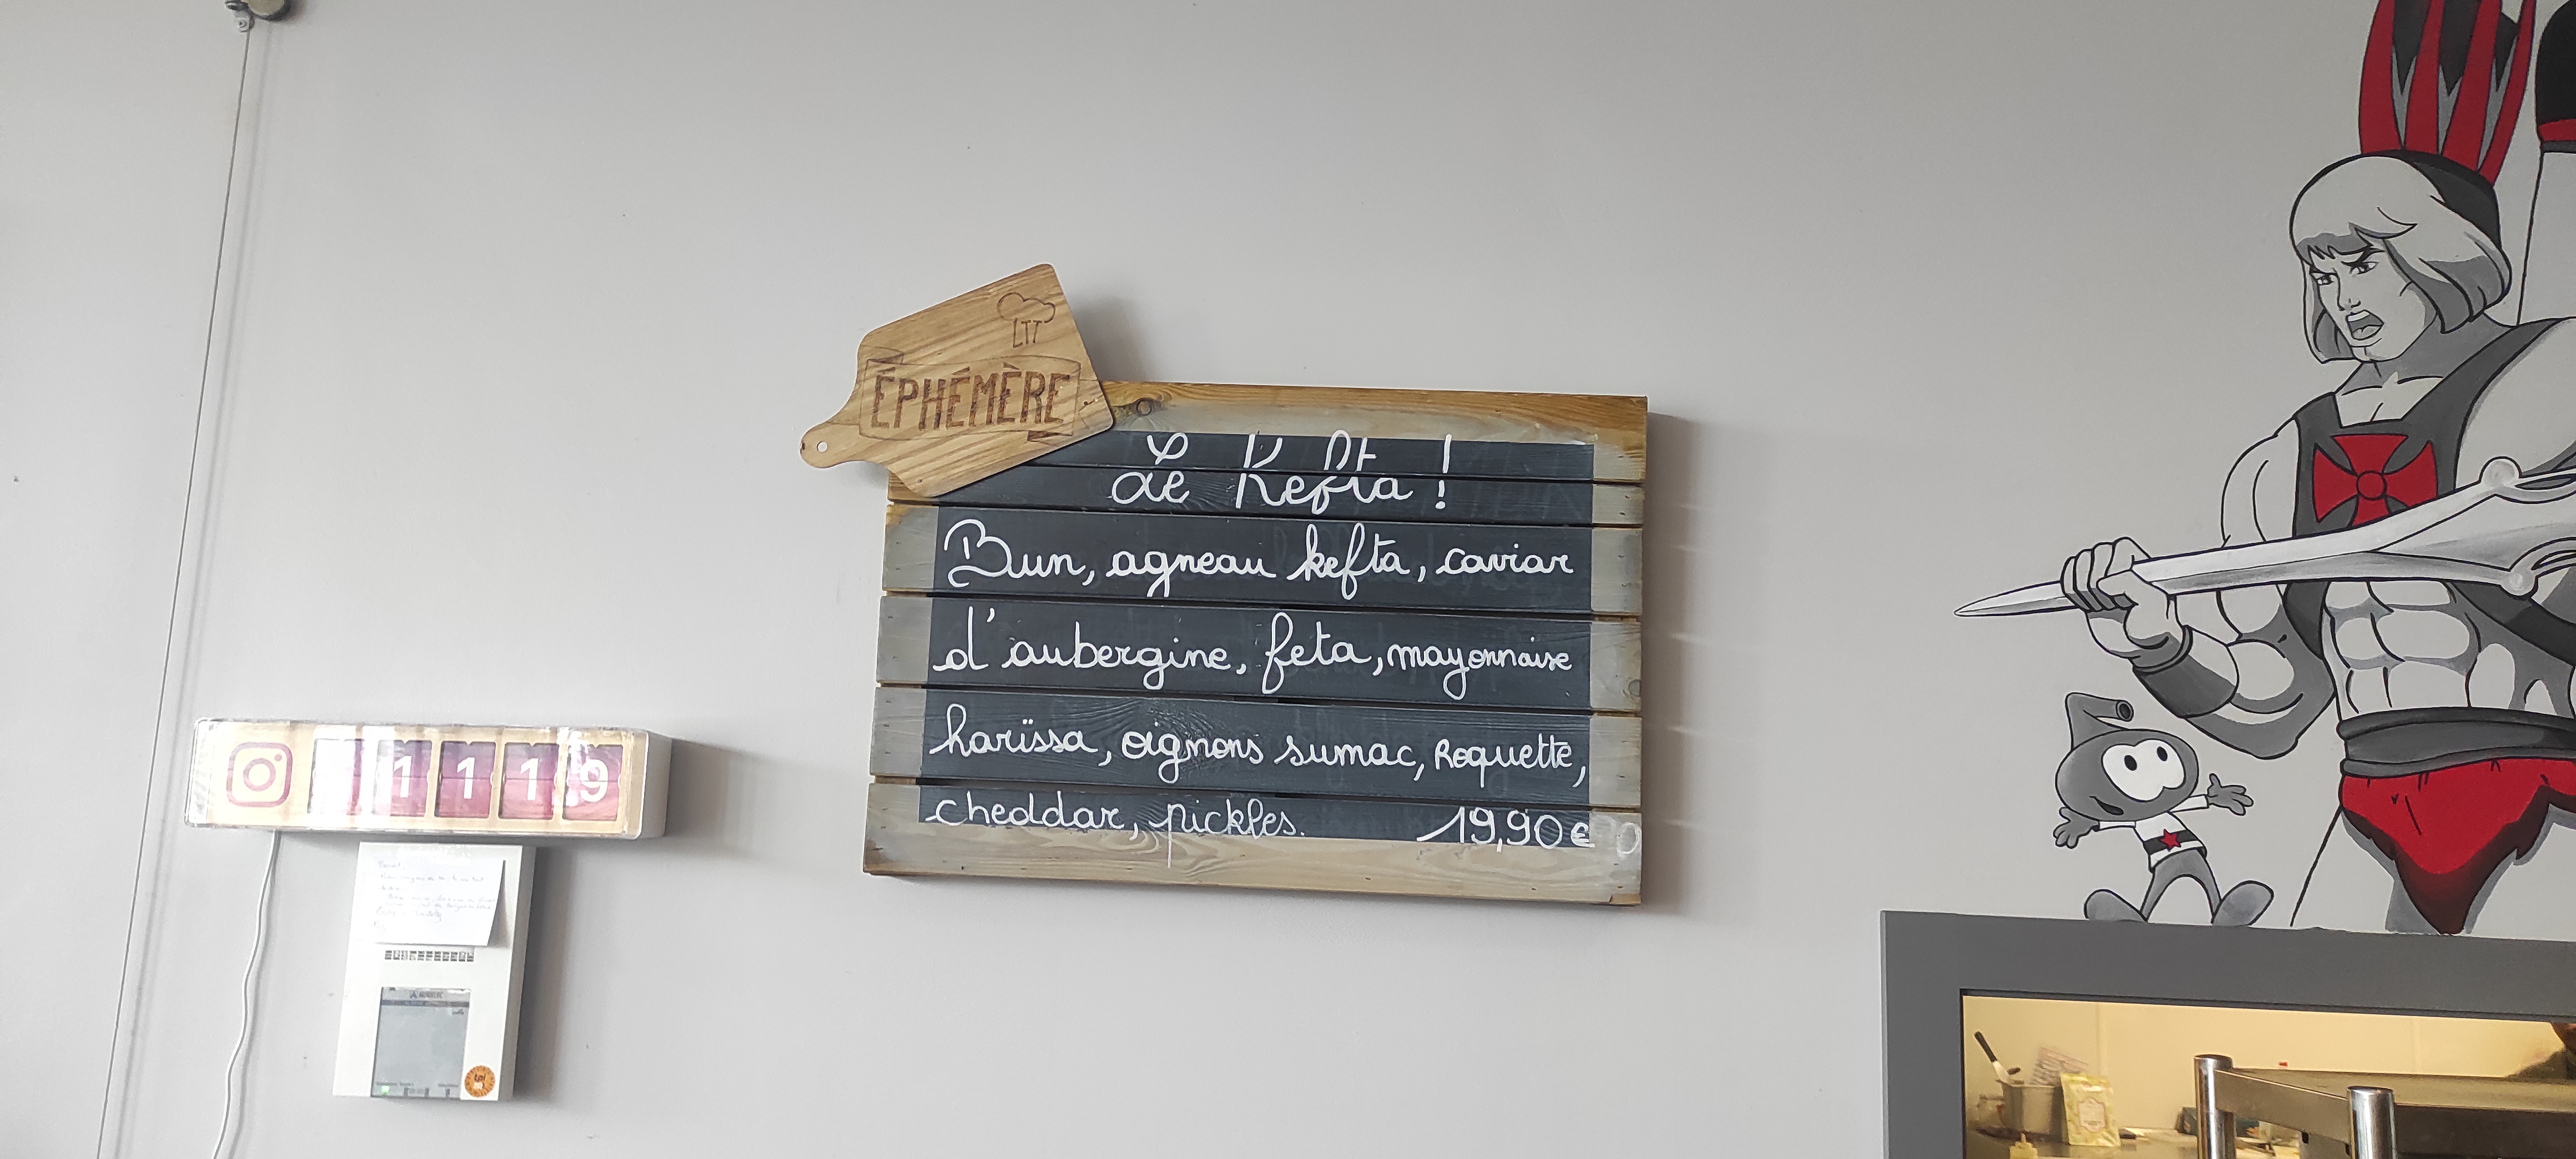 LTT
ÉPHÉMÈRE
Le Kefta !
Bun, agneau kefta, caviar
d'aubergine, feta, mayonnaise
harïssa, oignons sumac, Roquette,
cheddar, pickles. 19,90€
1119